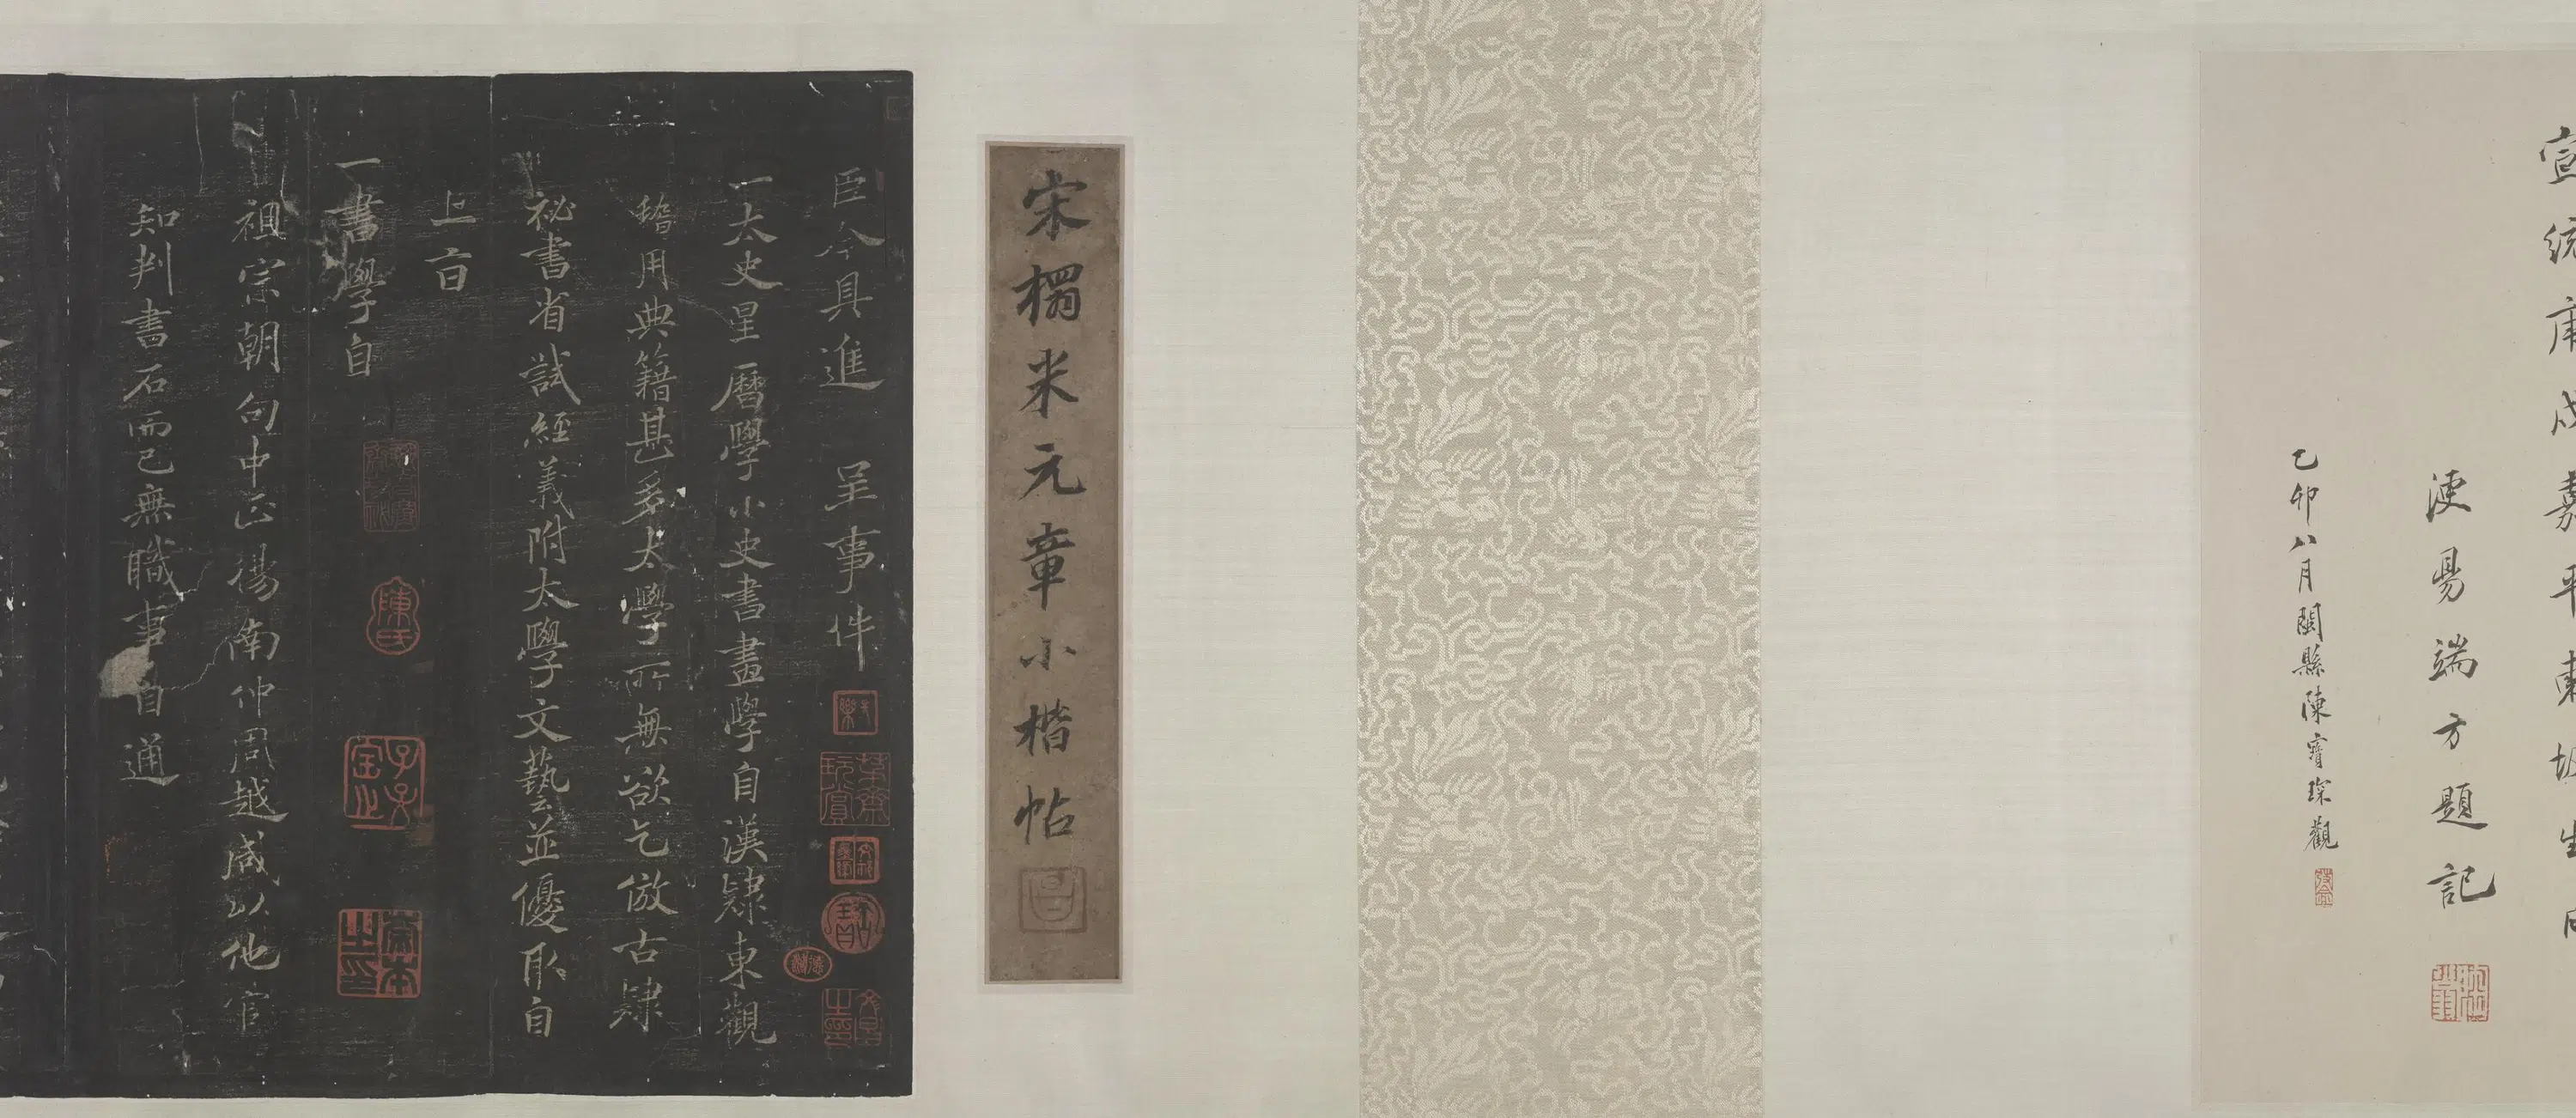 宣統庚戌嘉平東坡生
浭易端方題記
乙卯八月閩縣陳寶琛觀
宋搨米元章小楷帖
臣今具進呈事件
一太史星曆學小史書畫學自漢隸東觀
稽用典籍甚多太學所無欲乞倣古隸
祕書省試經義附太學文藝並優取自
上㫖
一書學自
祖宗朝句中正楊南仲周越咸以他官
知判書石而已無職事自通
陳氏
子子
宝止